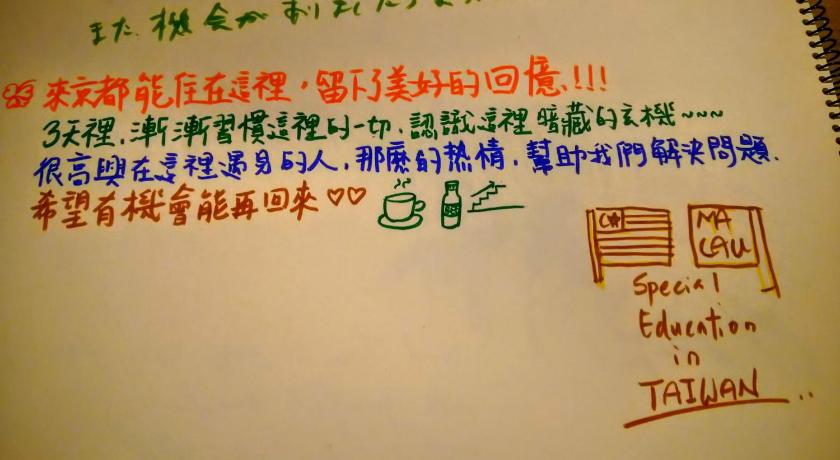 また機会が
來京都能住在這裡,留下了美好的回憶!!!
3天裡,漸漸習慣這裡的一切,認識這裡暗藏的玄機~~~
很高興在這裡遇見的人,那麼的热情,幫助我們解決問題.
希望有機會能再回來♡♡
MA
CAU
Special
Education
in
TAIWAN...